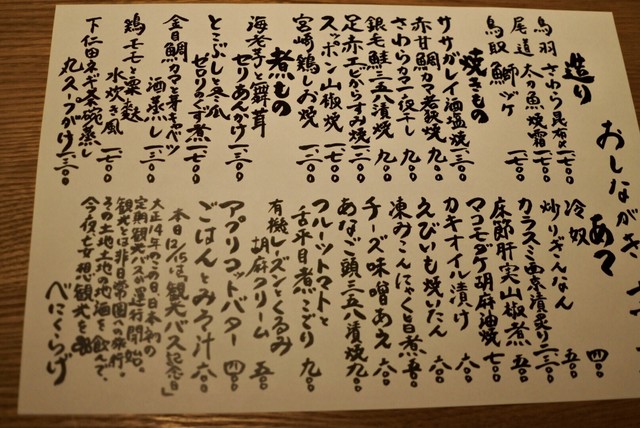 おしながき
造り
鳥羽 さわら昆布〆 一七〇〇
尾道 太刀魚焼霜 一七〇〇
鳥取 鰤ヅケ 一七〇〇
焼きもの
ササガレイ酒塩焼 一、三〇〇
赤甘鯛カマ若狭焼 九〇〇
さわらカマ一夜干し 九〇〇
銀毛鮭三五八漬焼 九〇〇
足赤エビからすみ焼 一、二〇〇
スッポン山椒焼 一、七〇〇
宮崎鶏しお焼 一、二〇〇
煮もの
海老芋と舞茸
ゼリあんかけ 一、三〇〇
とこぶしと冬瓜
ゼロリのくず煮 一七〇〇
金目鯛カマと芽キャベツ
酒蒸し 一、三〇〇
鶏モモと粟麩
水炊き風 一七〇〇
下仁田ネギ茶碗蒸し
丸スープがけ 一、三〇〇
あて
冷奴 四〇〇
炒りぎんなん 五〇〇
カラスミ西京漬炙り 二、三〇〇
床節肝実山椒煮 五〇〇
マコモダケ胡麻油焼 七〇〇
カキオイル漬け 六〇〇
えびいも焼いたん 六〇〇
凍みこんにゃく旨煮 五〇〇
チーズ味噌あえ 六〇〇
あなご頭三五八漬焼 九〇〇
フルーツトマトと
舌平目煮こごり 九〇〇
有機レーズンとくるみ
胡麻クリーム 五〇〇
アプリコットバター 四〇〇
ごはんとみそ汁 六〇〇
本日12/15は「観光バス記念日」
大正14年のこの日、日本初の
定期観光バスが運行開始。
観光とは非日常圏への旅行。
その土地土地の地酒を飲んで、
今夜亡妄想観光を
べにくらげ